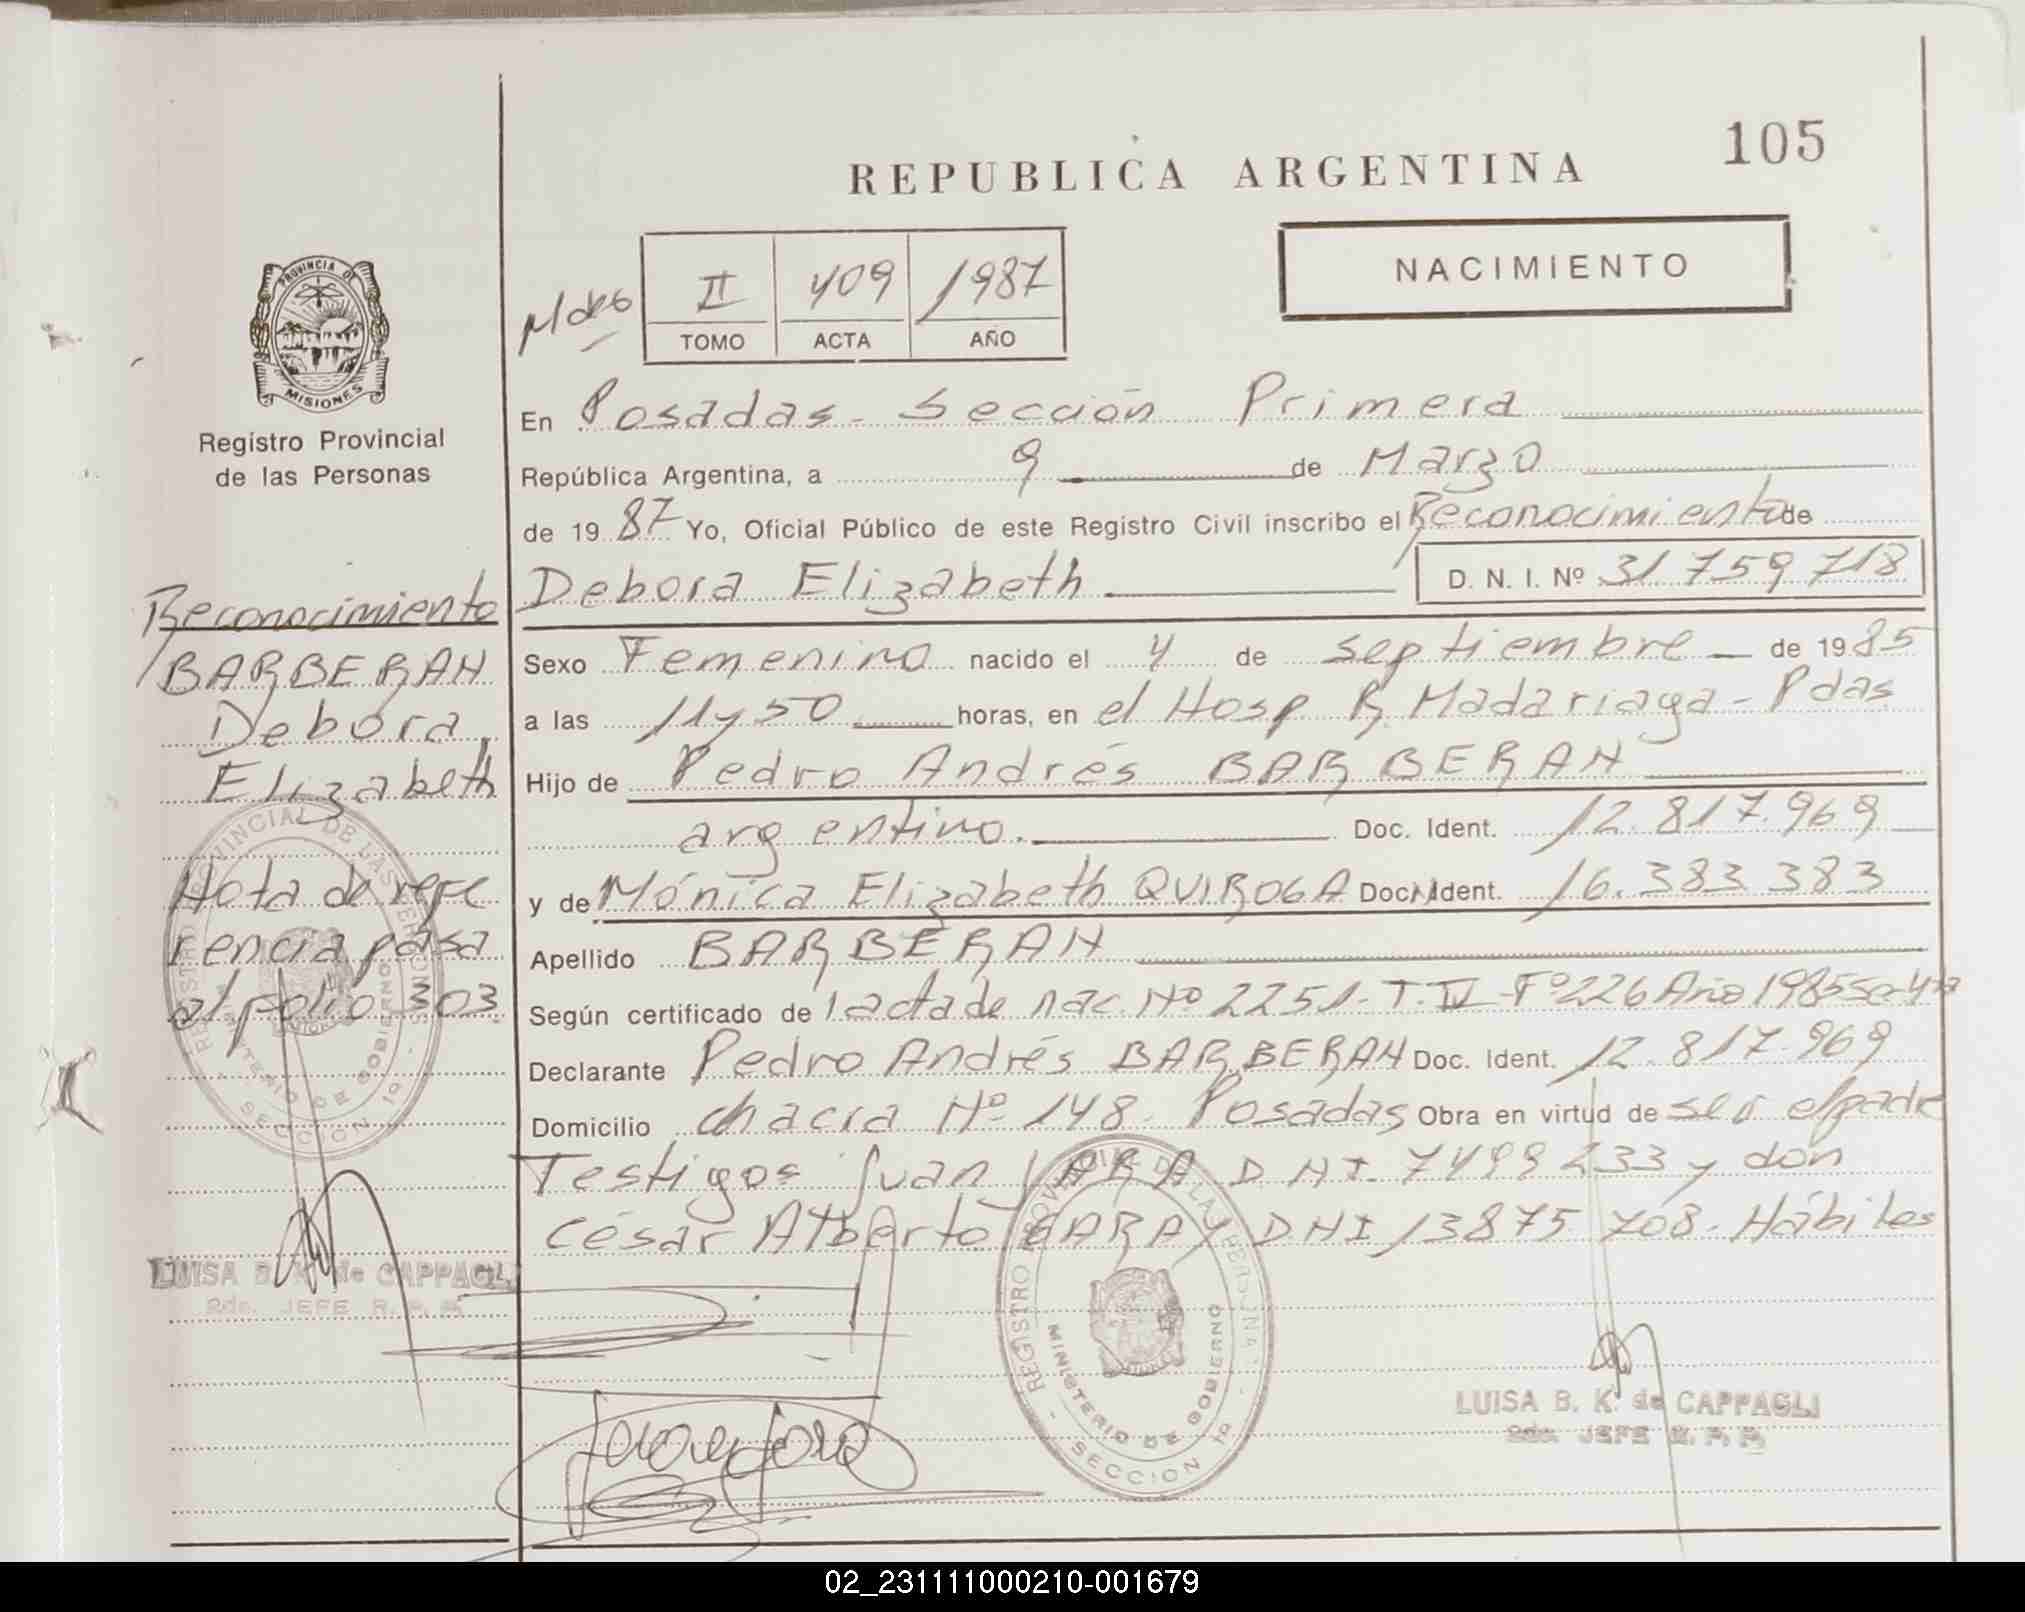 105
REPUBLICA ARGENTINA
NACIMIENTO
II 409 1987
TOMO ACTA AÑO
PROVINCIA DE MISIONES
Registro Provincial
de las Personas
En Posadas - Sección Primera
República Argentina, a 9 de Marzo
de 19 87 Yo, Oficial Público de este Registro Civil inscribo el Reconocimiento de
Debora Elizabeth D. N. I. Nº 31 759 718
Sexo Femenino nacido el 4 de septiembre de 19 85
a las 11 y 50 horas, en el Hosp R. Madariaga - Pdas
Hijo de Pedro Andrés BARBERAN
argentino. Doc. Ident. 12.817.969
y de Mónica Elizabeth QUIROGA Doc. Ident. 16.383 383
Apellido BARBERAN
Según certificado de l acta de nac. Nº 2251 - T. IV - Fº 226 Año 1985
Declarante Pedro Andrés BARBERAN Doc. Ident. 12.817.969
Domicilio chacra Nº 148 - Posadas Obra en virtud de ser el padre
Testigos Juan JARA DNI. 7499233 y don
César Alberto GARAY DNI 13875 708 - Hábiles
Reconocimiento
BARBERAN
Debora
Elizabeth
Nota de refe
rencia pasa
al folio 303
REGISTRO PROVINCIAL DE LAS PERSONAS
MINISTERIO DE GOBIERNO
SECCION 1ª
LUISA B. K. de CAPPAGLI
2da. JEFE R. P. P.
REGISTRO PROVINCIAL DE LAS PERSONAS
MINISTERIO DE GOBIERNO
SECCION 1ª
LUISA B. K. de CAPPAGLI
2da. JEFE R. P. P.
02_231111000210-001679